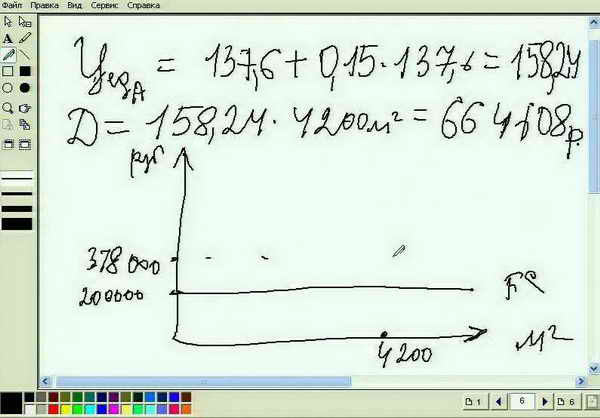 Файл Правка Вид Сервис Справка
Цед А = 137,6 + 0,15 · 137,6 = 158,24
Д = 158,24 · 4200м² = 664608р.
руб
378 000
200000
FC
4200
м²
1
6
6